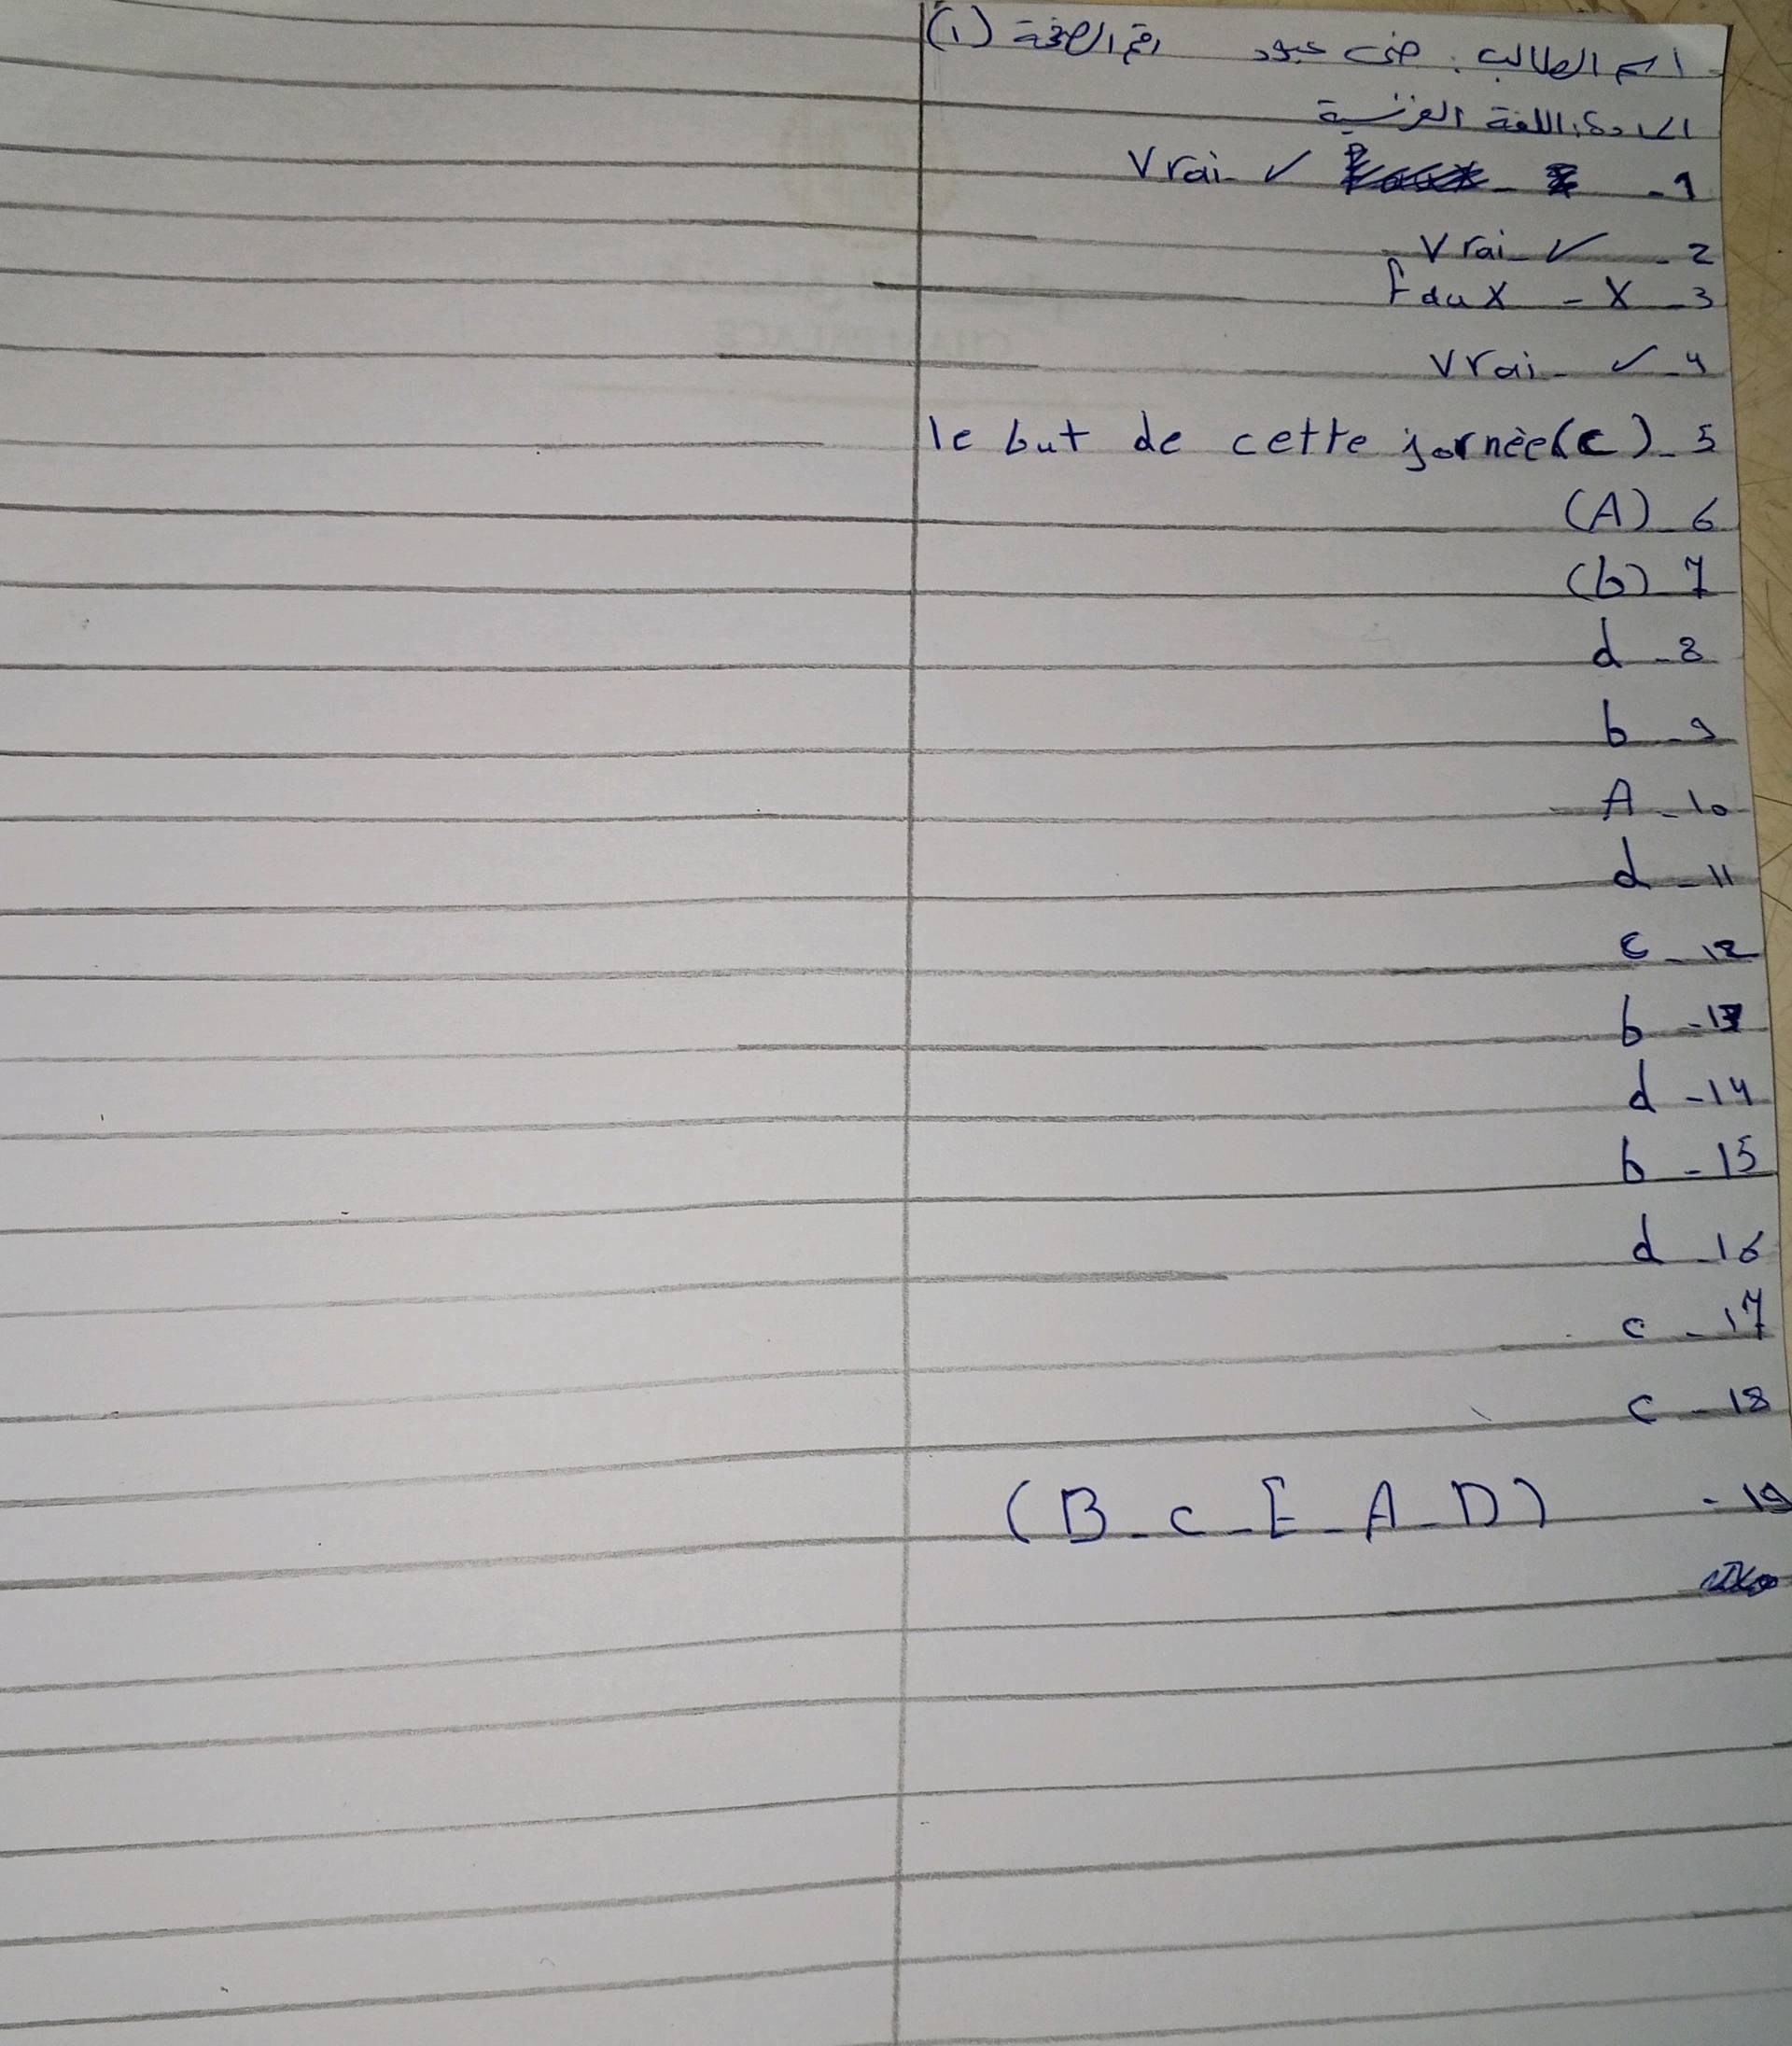 اسم الطالب : ضحى عبود رقم الصفحة (١)
المادة: اللغة الفرنسية
1- Vrai ✓
2- Vrai ✓
3- X - Faux
4- ✓ Vrai
5- (c) le but de cette jornèe
6- (A)
7- (b)
8- d
9- b
10- A
11- d
12- c
13- b
14- d
15- b
16- d
17- c
18- c
19- (B-c-E-A-D)